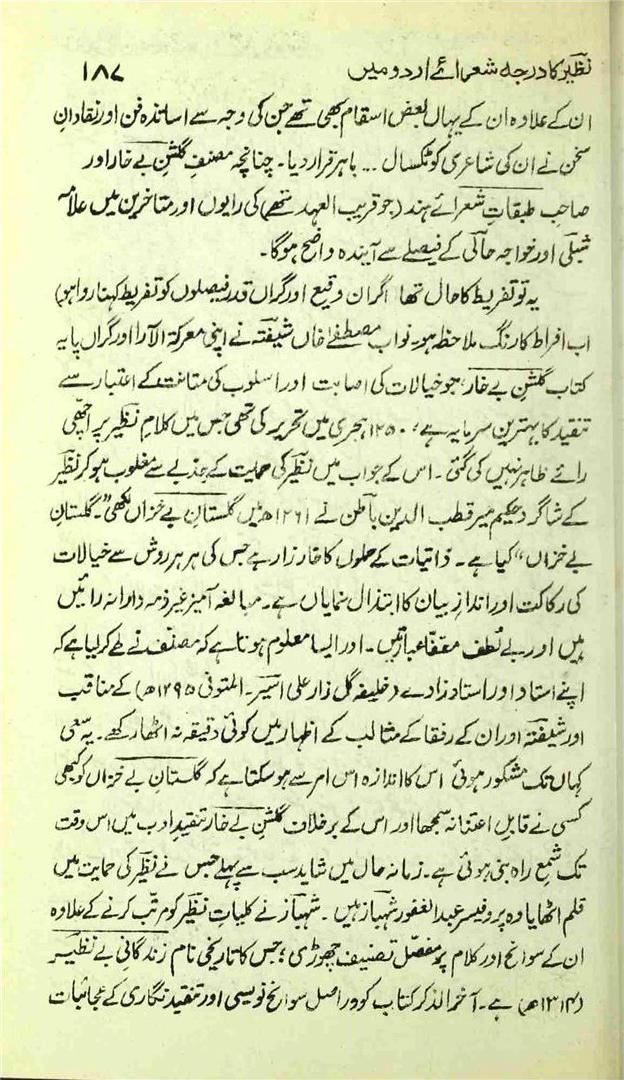 نظیر کا درجہ شعرائے اردو میں ۱۸۷
ان کے علاوہ ان کے یہاں بعض اسقام بھی تھے جن کی وجہ سے اساتذہ فن اور نقادانِ
سخن نے ان کی شاعری کو ٹکسال ... باہر قرار دیا۔ چنانچہ مصنفِ گلشنِ بے خار اور
صاحبِ طبقاتِ شعرائے ہند (جو قریب العہد تھے) کی رایوں اور متاخرین میں علامہ
شبلی اور خواجہ حالی کے فیصلے سے آیندہ واضح ہوگا۔
یہ تو تفریط کا حال تھا (اگر ان وقیع اور گراں قدر فیصلوں کو تفریط کہنا روا ہو)
اب افراط کا رنگ ملاحظہ ہو۔ نواب مصطفےٰ خاں شیفتہ نے اپنی معرکۃ الآرا اور گراں پایہ
کتاب گلشنِ بے خار، جو خیالات کی اصابت اور اسلوب کی متانت کے اعتبار سے
تنقید کا بہترین سرمایہ ہے، ۱۲۵۰ ہجری میں تحریر کی تھی جس میں کلامِ نظیر پر اچھی
رائے ظاہر نہیں کی گئی۔ اس کے جواب میں نظیر کی حمایت کے جذبے سے مغلوب ہو کر نظیر
کے شاگرد حکیم میر قطب الدین باطن نے ۱۲۶۱ھ میں گلستانِ بے خزاں لکھی"۔ گلستانِ
بے خزاں" کیا ہے۔ ذاتیات کے حملوں کا خارزار ہے جس کی ہر ہر روش سے خیالات
کی رکاکت اور اندازِ بیان کا ابتذال نمایاں ہے۔ مبالغہ آمیز غیر ذمہ دارانہ رائیں
ہیں اور بے لطف مقفّا عبارتیں۔ اور ایسا معلوم ہوتا ہے کہ مصنف نے طے کر لیا ہے کہ
اپنے استاد اور استاد زادے (خلیفہ گل زار علی اسیر۔ المتوفی ۱۲۹۵ھ) کے مناقب
اور شیفتہ اور ان کے رفقا کے مثالب کے اظہار میں کوئی دقیقہ نہ اٹھا رکھے۔ یہ سعی
کہاں تک مشکور ہوئی اس کا اندازہ اس امر سے ہو سکتا ہے کہ گلستانِ بے خزاں کو کبھی
کسی نے قابلِ اعتنا نہ سمجھا اور اس کے برخلاف گلشنِ بے خار تنقیدِ ادب میں اس وقت
تک شمعِ راہ بنی ہوئی ہے۔ زمانہ حال میں شاید سب سے پہلے جس نے نظیر کی حمایت میں
قلم اٹھایا وہ پروفیسر عبدالغفور شہباز ہیں۔ شہباز نے کلیاتِ نظیر کو مرتب کرنے کے علاوہ
ان کے سوانح اور کلام پر مفصل تصنیف چھوڑی؛ جس کا تاریخی نام زندگانیِ بے نظیر
(۱۳۱۴ھ) ہے۔ آخر الذکر کتاب کو دراصل سوانح نویسی اور تنقید نگاری کے عجائبات